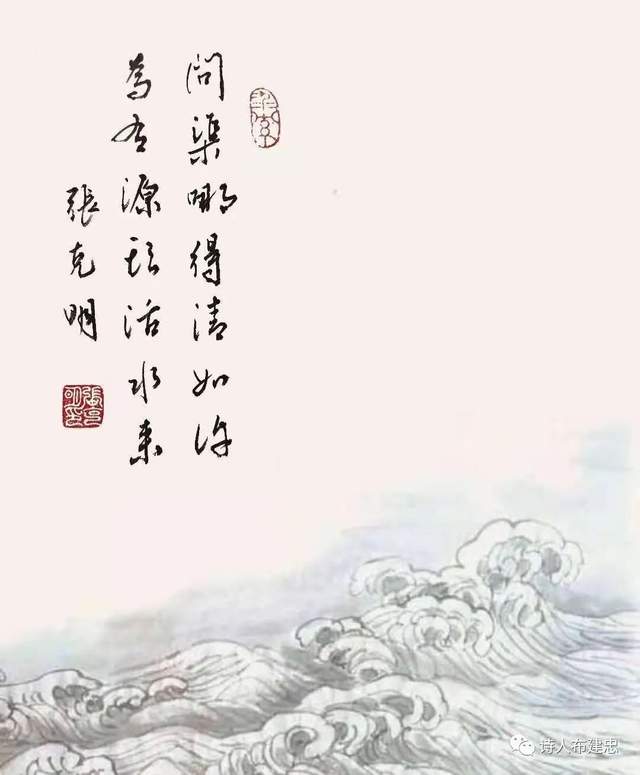 問渠哪得清如許
為有源頭活水来
張克明
诗人布建忠